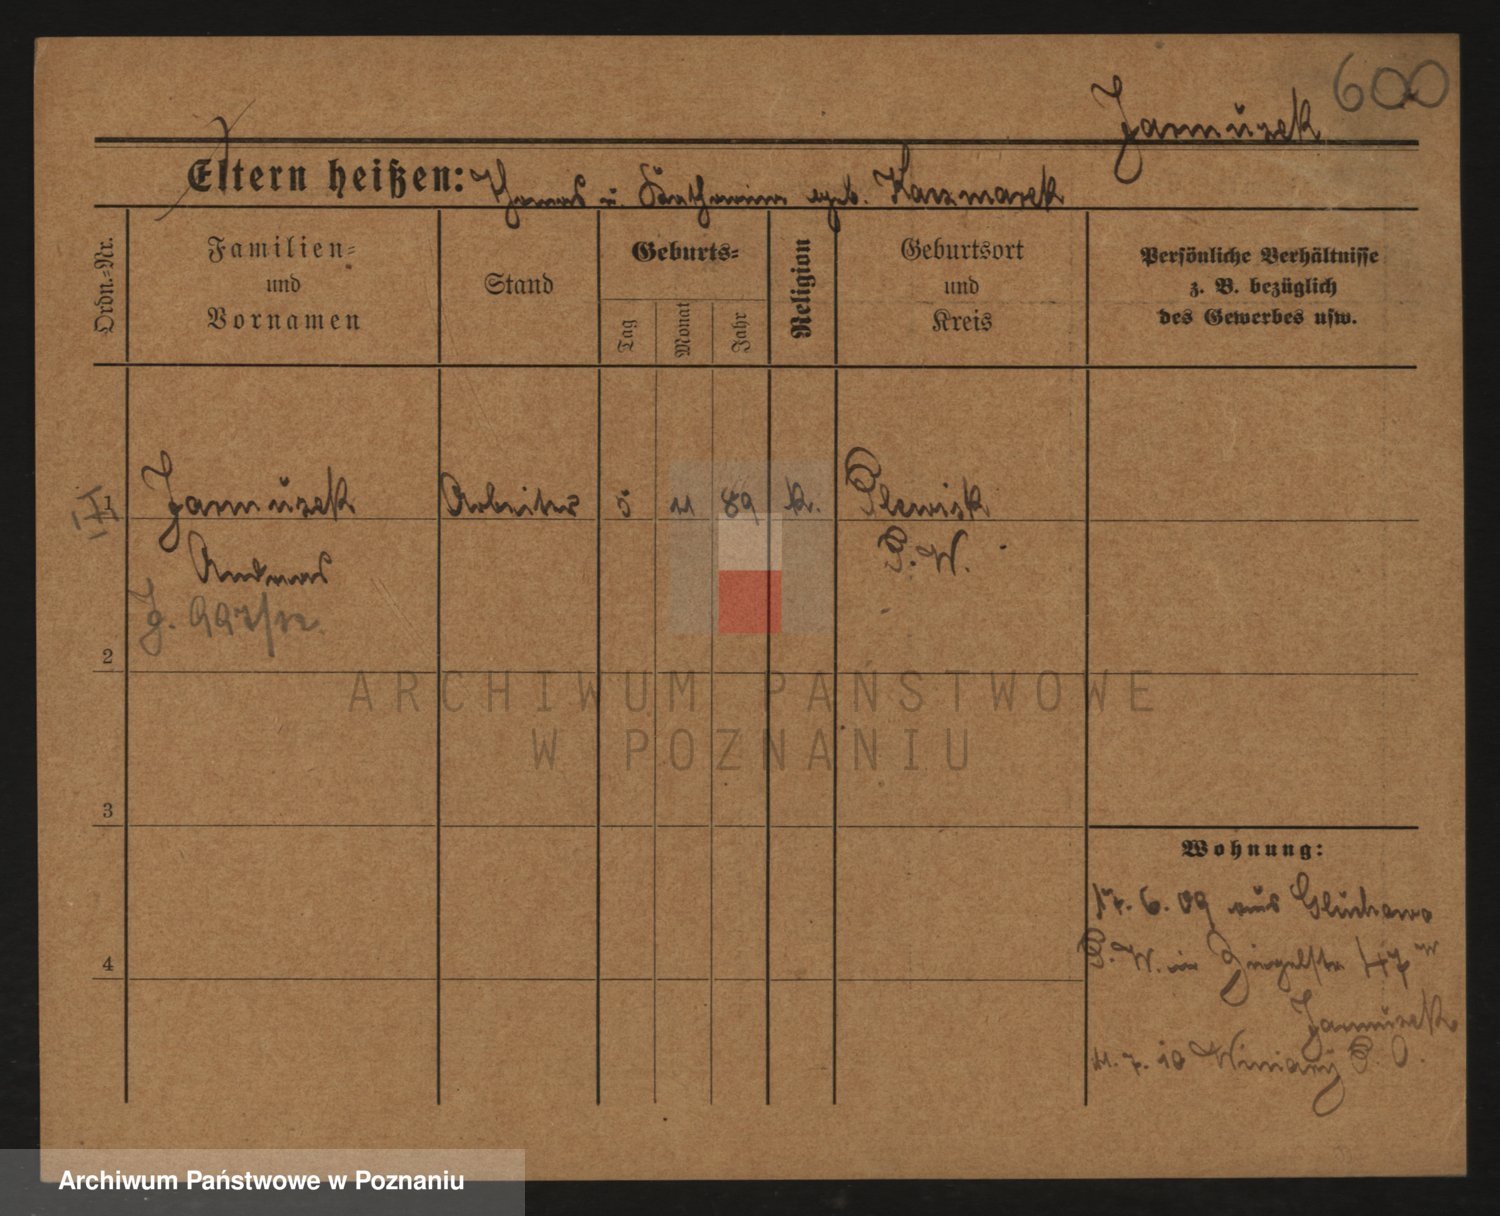 600
Jannuzek
Eltern heißen: Thomas u. Katharina geb. Kaczmarek
Ordn.-Nr.
Familien-
und
Vornamen
Stand
Geburts-
Tag
Monat
Jahr
Religion
Geburtsort
und
Kreis
Persönliche Verhältnisse
z. B. bezüglich
des Gewerbes usw.
1 Jannuzek Arbeiter 5 11 89 k. Plewisk
Andreas P. W.
2
3
4
Wohnung:
17. 6. 09 aus Gluchowo
P. W. in Ziegelstr 47
Jannuzek
11. 7. 10 Winiary P. O.
ARCHIWUM PAŃSTWOWE
W POZNANIU
Archiwum Państwowe w Poznaniu